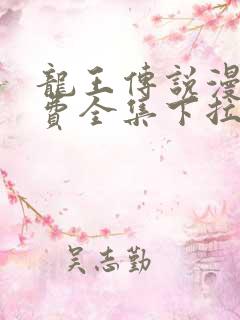 龍王傳說漫
費全集下拉
吴志勤